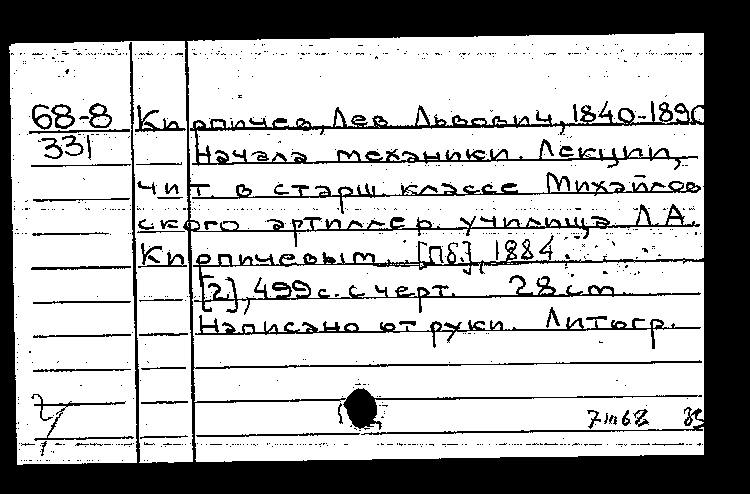 68-8 Кирпичев, Лев Львович, 1840-1890
331 Начала механики. Лекции,
чит. в старш. классе Михайлов
ского артиллер. училища Л.А.
Кирпичевым. [Пб.], 1884.
[2], 499 с. с черт. 28 cm.
Написано от руки. Литогр.
7 III 68